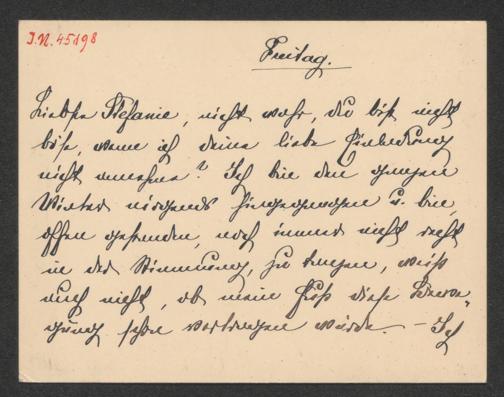 J.N. 45898
Freitag.
Liebste Stefanie, nicht wahr, du bist nicht
böse, wenn ich deine liebe Einladung
nicht annehme? Ich bin den ganzen
Winter nirgends hingegangen u. bin,
offen gestanden, noch immer nicht recht
in der Stimmung, zu tanzen, weiß
auch nicht, ob mein Fuß diese Bewe-
gung schon vertragen würde. – Ich